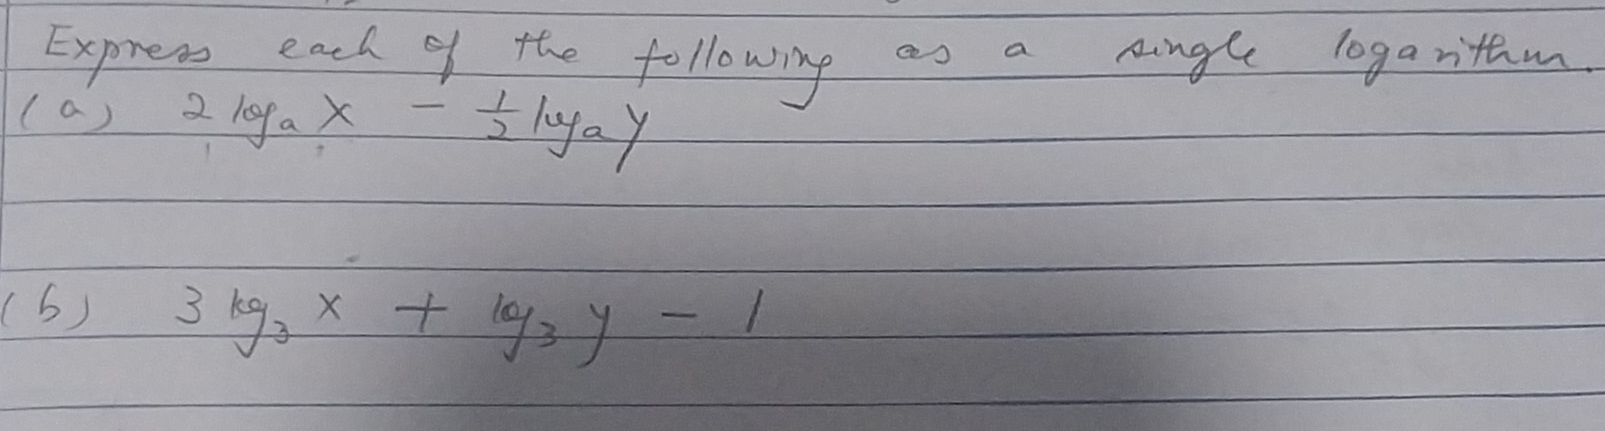 Express each of the following as a single logarithm.
(a) 2 logₐ x - ½ logₐ y
(b) 3 log₃ x + log₃ y - 1